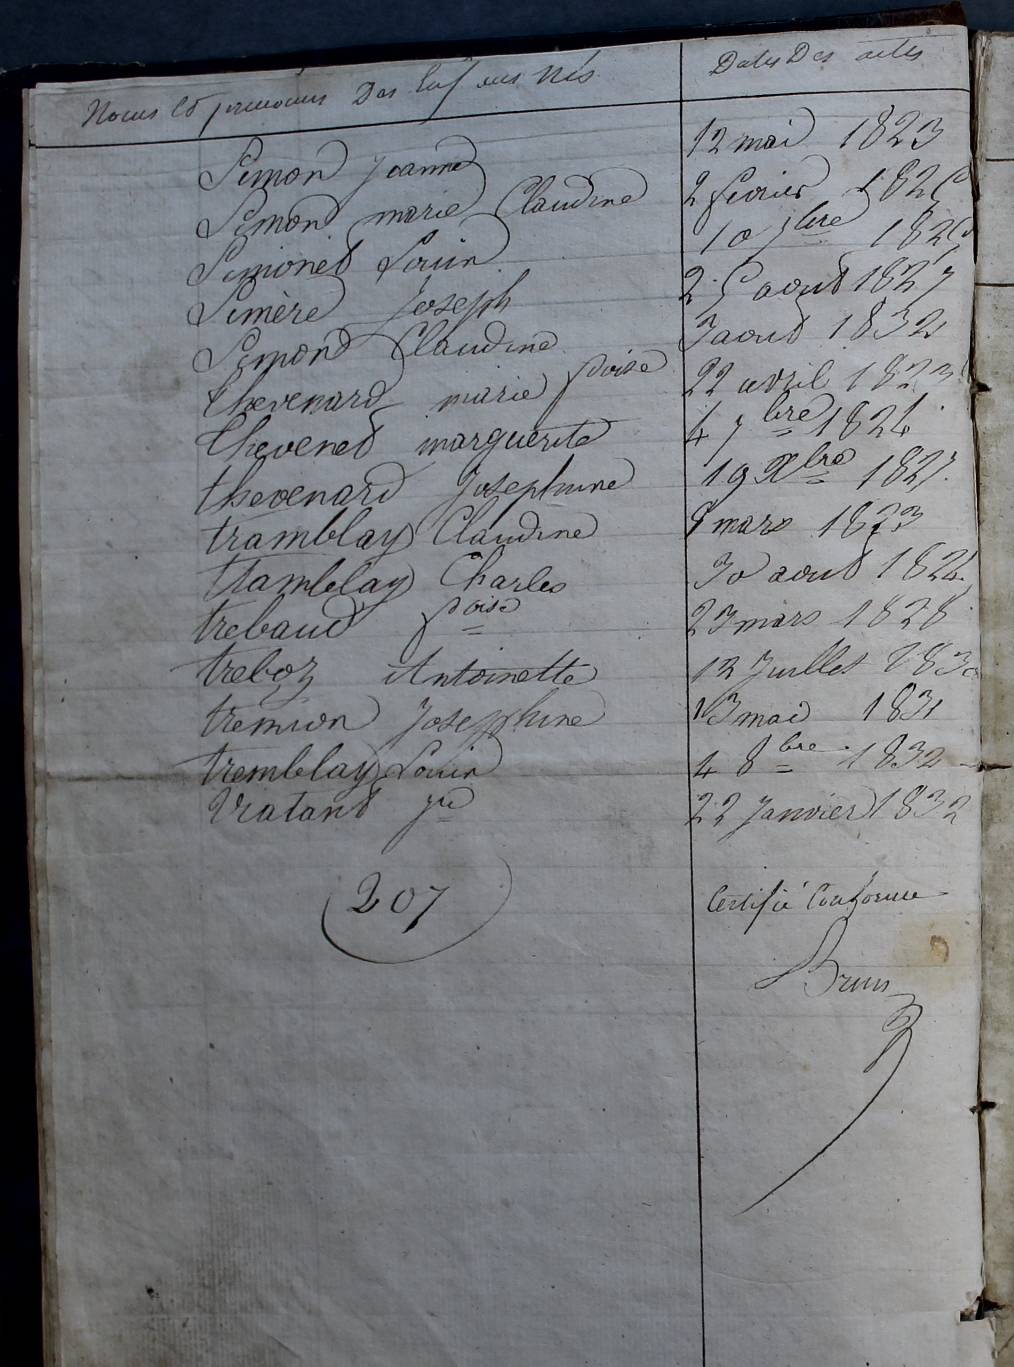 Noms et prenoms Des Enfans Nés Dates Des actes
Simon Jeanne 12 mai 1823
Simon marie Claudine 2 fevrier 1825
Simonet Louis 10 7bre 1826
Simère Joseph 25 aout 1827
Simon Claudine 3 aout 1832
thevenard marie foise 22 avril 1823
thevenet marguerite 4 7bre 1824
thevenard Josephine 19 Xbre 1827
tramblay Claudine 8 mars 1823
tramblay Charles 30 aout 1824
trebaud foise 23 mars 1828
treboz Antoinette 12 Juillet 1830
tremion Josephine 13 mai 1831
tremblay Louis 4 8bre 1832
Vratant 22 Janvier 1832
207
Certifié Conforme
Brun